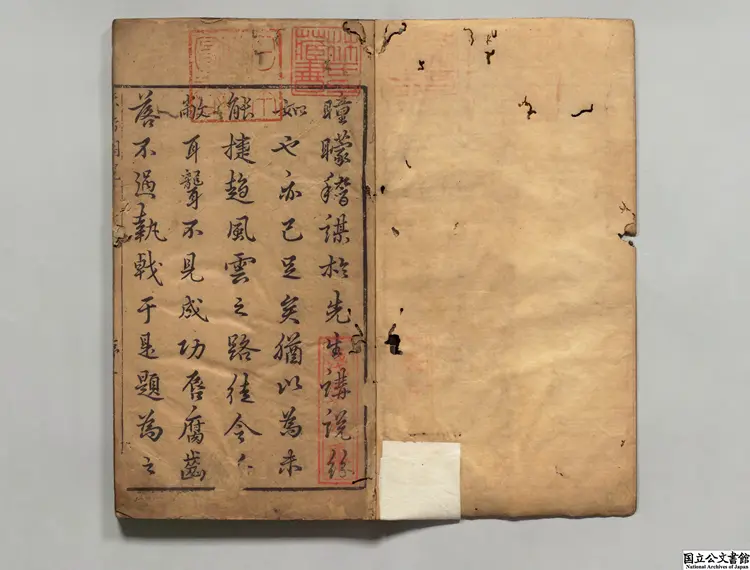 瞳矇稽謀於先生講説
如也亦已足矣猶以為未
能捷趨風雲之路徒令
敝耳聾不見成功唇腐齒
落不過執戟于是題為之
国立公文書館
National Archives of Japan